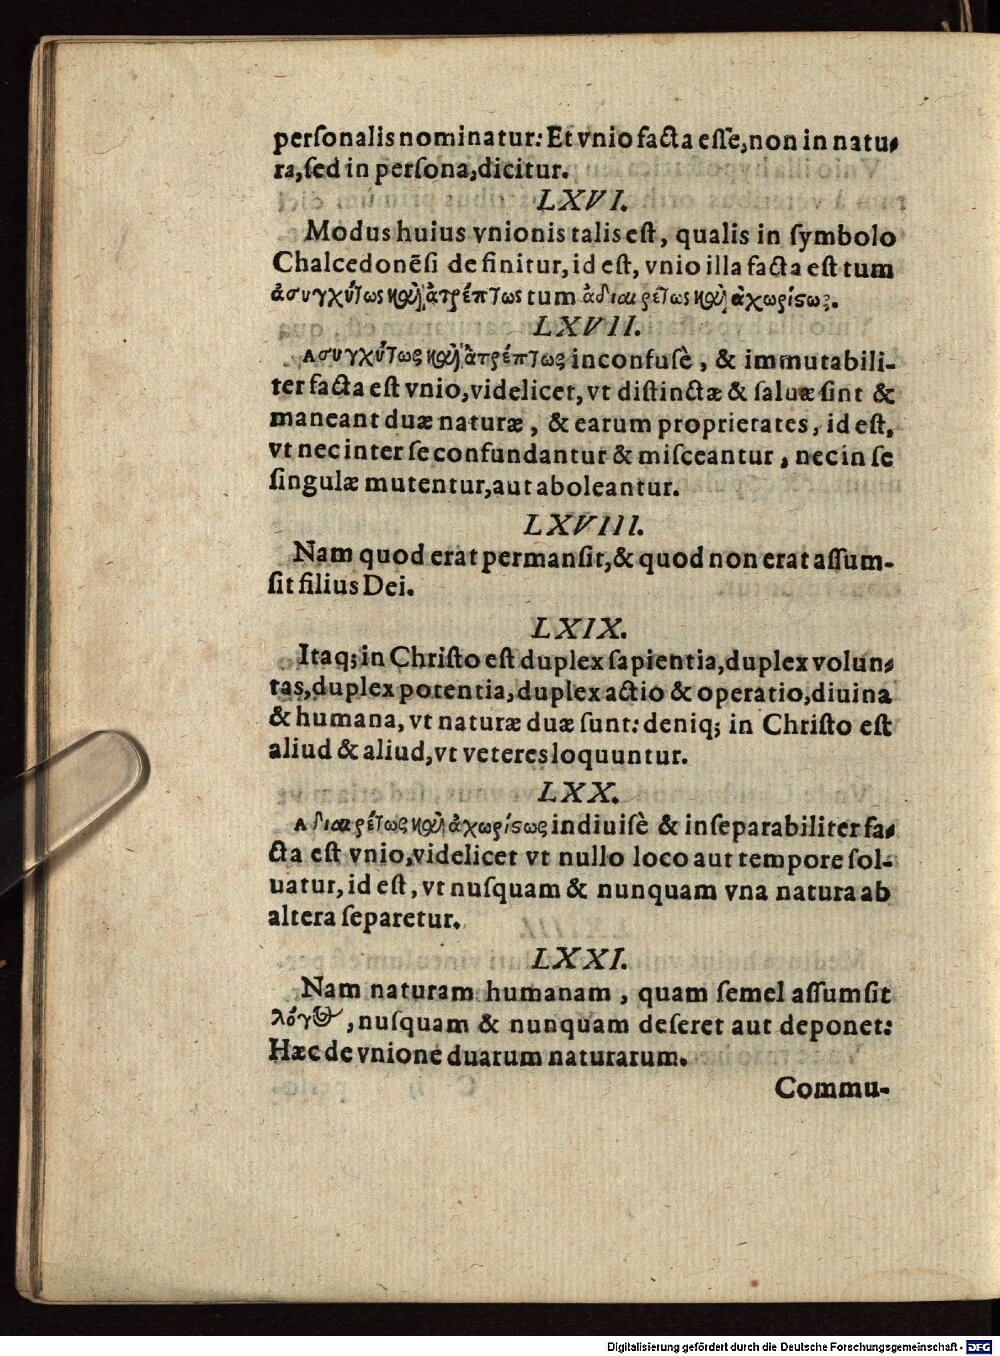 perſonalis nominatur: Et vnio facta eſſe, non in natu-
ra, ſed in perſona, dicitur.
LXVI.
Modus huius vnionis talis eſt, qualis in ſymbolo
Chalcedonẽſi definitur, id eſt, vnio illa facta eſt tum
ἀσυγχύτως καὶ ἀτρέπτως tum ἀδιαιρέτως καὶ ἀχωρίςως.
LXVII.
Ασυγχύτως καὶ ἀτρέπτως inconfusè, & immutabili-
ter facta eſt vnio, videlicet, vt diſtinctæ & ſaluæ ſint &
maneant duæ naturæ, & earum proprietates, id eſt,
vt nec inter ſe confundantur & miſceantur, nec in ſe
ſingulæ mutentur, aut aboleantur.
LXVIII.
Nam quod erat permanſit, & quod non erat aſſum-
ſit filius Dei.
LXIX.
Itaq; in Chriſto eſt duplex ſapientia, duplex volun-
tas, duplex potentia, duplex actio & operatio, diuina
& humana, vt naturæ duæ ſunt: deniq; in Chriſto eſt
aliud & aliud, vt veteres loquuntur.
LXX.
Αδιαιρέτως καὶ ἀχωρίςως indiuiſè & inſeparabiliter fa-
cta eſt vnio, videlicet vt nullo loco aut tempore ſol-
uatur, id eſt, vt nuſquam & nunquam vna natura ab
altera ſeparetur.
LXXI.
Nam naturam humanam, quam ſemel aſſumſit
λόγος, nuſquam & nunquam deſeret aut deponet:
Hæc de vnione duarum naturarum.
Commu-
Digitalisierung gefördert durch die Deutsche Forschungsgemeinschaft - DFG